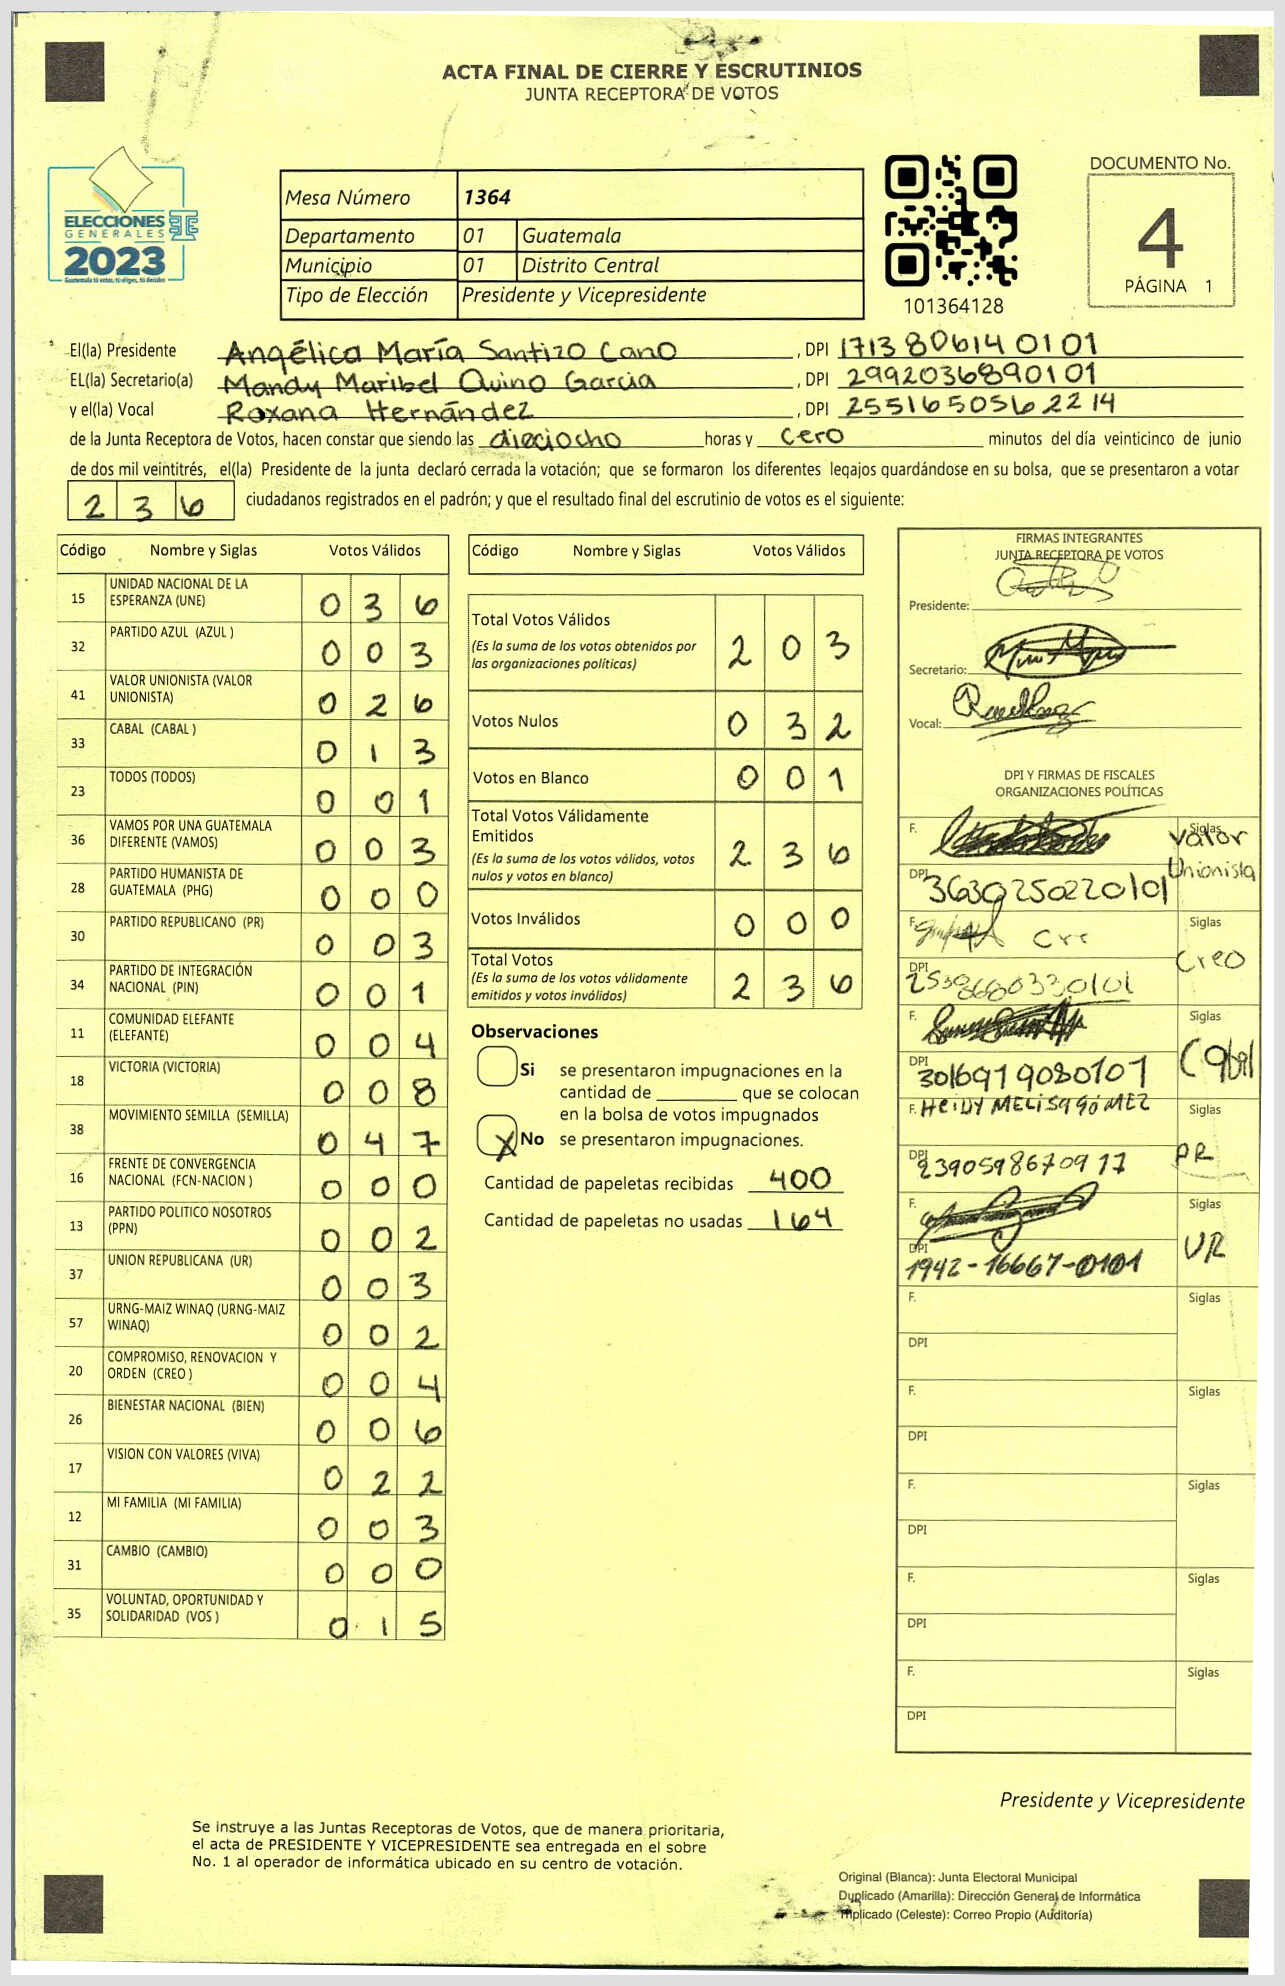 ACTA FINAL DE CIERRE Y ESCRUTINIOS
JUNTA RECEPTORA DE VOTOS
ELECCIONES
GENERALES
2023
Guatemala tú votas, tú eliges, tú decides
Mesa Número 1364
Departamento 01 Guatemala
Municipio 01 Distrito Central
Tipo de Elección Presidente y Vicepresidente
101364128
DOCUMENTO No.
4
PÁGINA 1
El(la) Presidente Angélica María Santizo Cano, DPI 1713806140101
EL(la) Secretario(a) Mandy Maribel Quino García, DPI 2992036890101
y el(la) Vocal Roxana Hernández, DPI 2551650562214
de la Junta Receptora de Votos, hacen constar que siendo las dieciocho horas y cero minutos del día veinticinco de junio
de dos mil veintitrés, el(la) Presidente de la junta declaró cerrada la votación; que se formaron los diferentes legajos guardándose en su bolsa, que se presentaron a votar
236 ciudadanos registrados en el padrón; y que el resultado final del escrutinio de votos es el siguiente:
Código Nombre y Siglas Votos Válidos
15 UNIDAD NACIONAL DE LA ESPERANZA (UNE) 036
32 PARTIDO AZUL (AZUL ) 003
41 VALOR UNIONISTA (VALOR UNIONISTA) 026
33 CABAL (CABAL ) 013
23 TODOS (TODOS) 001
36 VAMOS POR UNA GUATEMALA DIFERENTE (VAMOS) 003
28 PARTIDO HUMANISTA DE GUATEMALA (PHG) 000
30 PARTIDO REPUBLICANO (PR) 003
34 PARTIDO DE INTEGRACIÓN NACIONAL (PIN) 001
11 COMUNIDAD ELEFANTE (ELEFANTE) 004
18 VICTORIA (VICTORIA) 008
38 MOVIMIENTO SEMILLA (SEMILLA) 047
16 FRENTE DE CONVERGENCIA NACIONAL (FCN-NACION ) 000
13 PARTIDO POLITICO NOSOTROS (PPN) 002
37 UNION REPUBLICANA (UR) 003
57 URNG-MAIZ WINAQ (URNG-MAIZ WINAQ) 002
20 COMPROMISO, RENOVACION Y ORDEN (CREO ) 004
26 BIENESTAR NACIONAL (BIEN) 006
17 VISION CON VALORES (VIVA) 022
12 MI FAMILIA (MI FAMILIA) 003
31 CAMBIO (CAMBIO) 000
35 VOLUNTAD, OPORTUNIDAD Y SOLIDARIDAD (VOS ) 015
Código Nombre y Siglas Votos Válidos
Total Votos Válidos 203
(Es la suma de los votos obtenidos por
las organizaciones políticas)
Votos Nulos 032
Votos en Blanco 001
Total Votos Válidamente
Emitidos 236
(Es la suma de los votos válidos, votos
nulos y votos en blanco)
Votos Inválidos 000
Total Votos 236
(Es la suma de los votos válidamente
emitidos y votos inválidos)
Observaciones
Si se presentaron impugnaciones en la
cantidad de ________ que se colocan
en la bolsa de votos impugnados
X No se presentaron impugnaciones.
Cantidad de papeletas recibidas 400
Cantidad de papeletas no usadas 164
FIRMAS INTEGRANTES
JUNTA RECEPTORA DE VOTOS
Presidente:
Secretario:
Vocal:
DPI Y FIRMAS DE FISCALES
ORGANIZACIONES POLÍTICAS
F. Siglas Valor
Unionista
DPI 3630250220101
F. Siglas
Creo
DPI
F. Siglas
Cabal
DPI 3016919080101
F. HEIDY MELISA GÓMEZ Siglas
PR
DPI 2390598670917
F. Siglas
UR
DPI 1942-16667-0101
F. Siglas
DPI
F. Siglas
DPI
F. Siglas
DPI
F. Siglas
DPI
F. Siglas
DPI
Presidente y Vicepresidente
Se instruye a las Juntas Receptoras de Votos, que de manera prioritaria,
el acta de PRESIDENTE Y VICEPRESIDENTE sea entregada en el sobre
No. 1 al operador de informática ubicado en su centro de votación.
Original (Blanca): Junta Electoral Municipal
Duplicado (Amarilla): Dirección General de Informática
Triplicado (Celeste): Correo Propio (Auditoría)